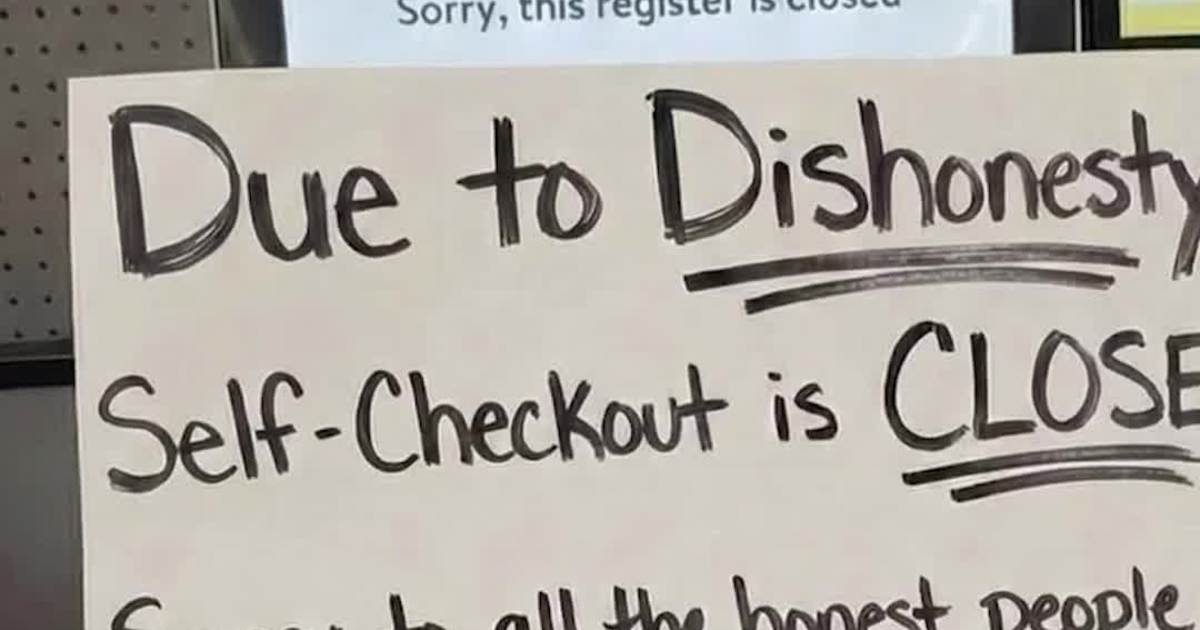 Sorry, this register is closed
Due to Dishonesty
Self-Checkout is CLOSE
to all the honest people